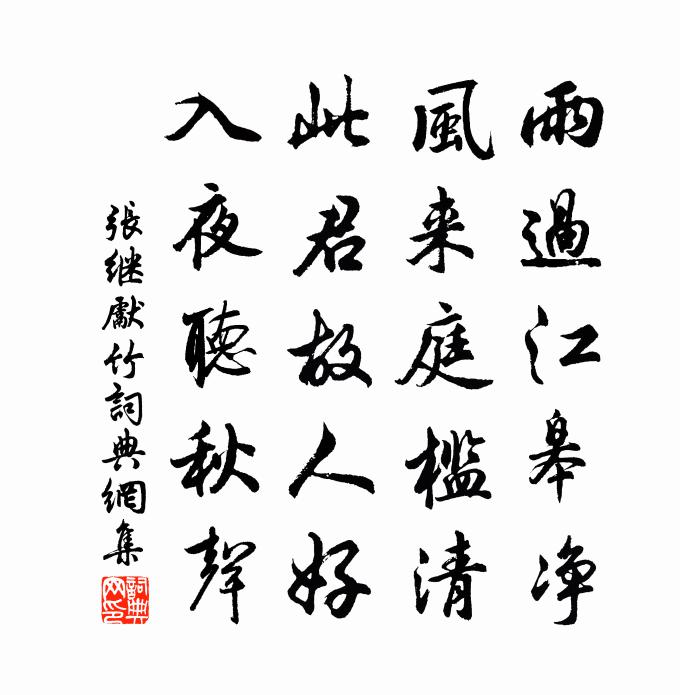 雨過江皋净
風来庭檻清
此君故人好
入夜聽秋聲
張继獻竹詞典網集
詞典網印